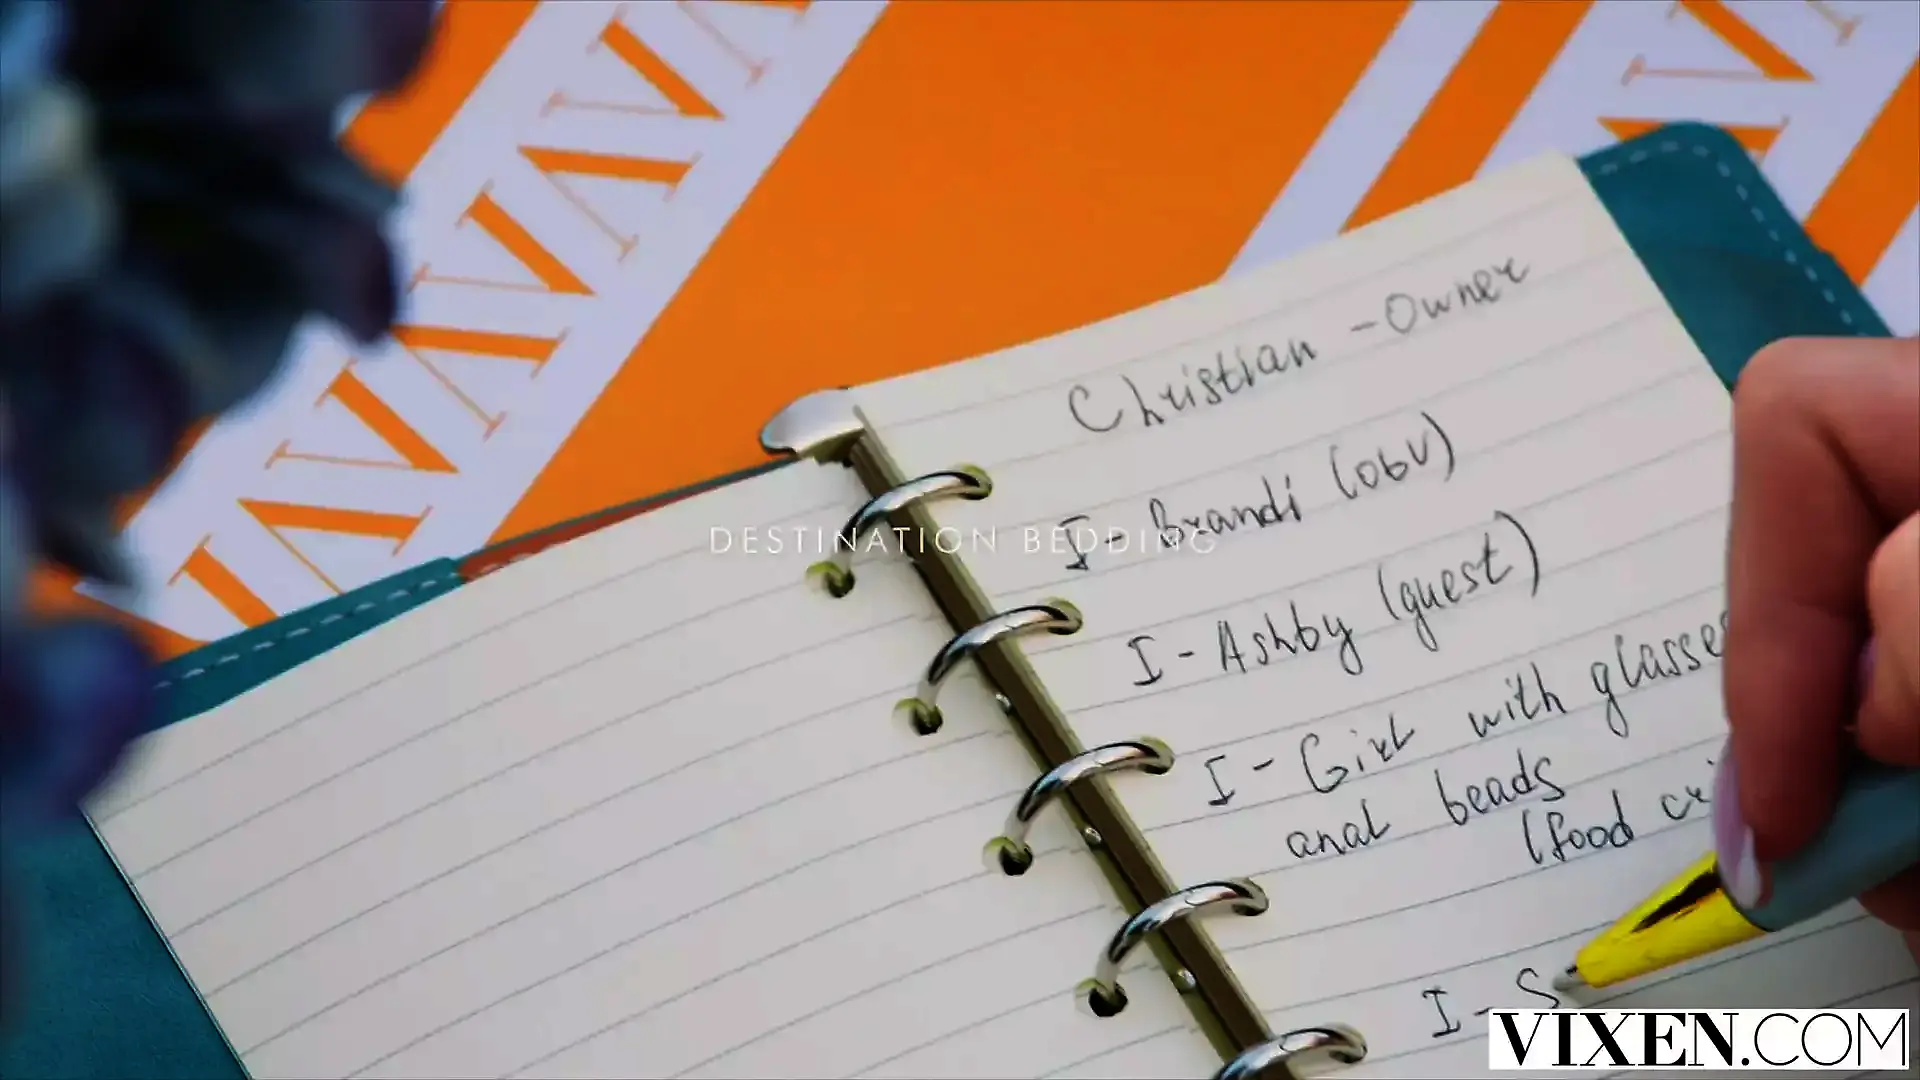 Christian - Owner
I - Brandi (obv)
DESTINATION BEDDING
I - Ashby (guest)
I - Girl with glasses
anal beads
(food
I - S
VIXEN.COM